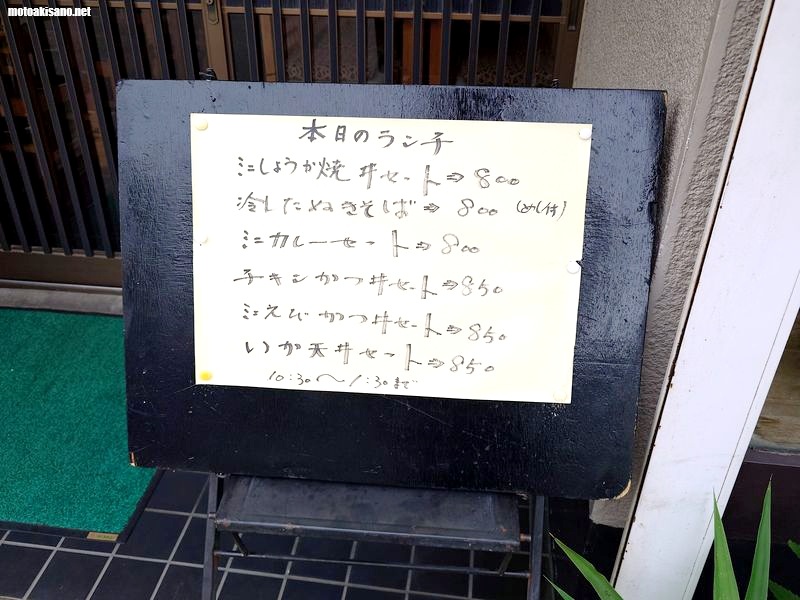 motoakisano.net
本日のランチ
ミニしょうが焼丼セット⇒800
冷したぬきそば⇒800(めし付)
ミニカレーセット⇒800
チキンかつ丼セット⇒850
ミニえびかつ丼セット⇒850
いか天丼セット⇒850
10:30〜1:30まで